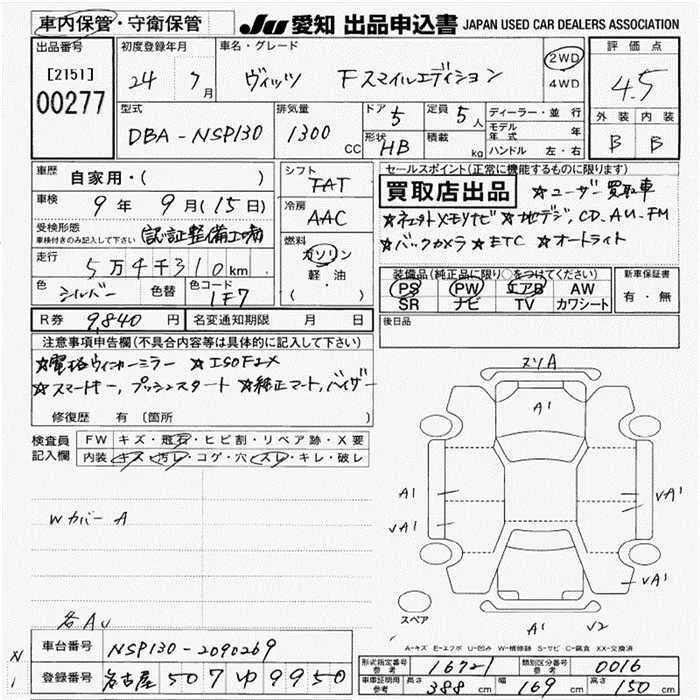 車内保管・守衛保管 JU 愛知 出品申込書 JAPAN USED CAR DEALERS ASSOCIATION
出品番号 [2151] 00277
初度登録年月 24 7月
車名・グレード ヴィッツ Fスマイルエディション
2WD
4WD
評価点 4.5
外装 内装
B B
型式 DBA-NSP130
排気量 1300 CC
ドア 5
定員 5人
形状 HB
積載 kg
ディーラー・並行
モデル年式 年
ハンドル 左・右
車歴 自家用・( )
車検 9年 9月(15日)
受検形態 認証整備工場
車検付きのみ記入して下さい
走行 5万4千310km
色 シルバー 色替 色コード 1F7
シフト FAT
冷房 AAC
燃料 ガソリン
軽油
( )
セールスポイント(正常に機能するものに限ります)
買取店出品 ☆ユーザー買取車
☆ネオットメモリナビ ☆地デジ, CD, AU-FM
☆バックカメラ ☆ETC ☆オートライト
装備品(純正品に限り○をつけてください)
PS PW エアB AW
SR ナビ TV カワシート
新車保証書
有・無
R券 9,840円 名変通知期限 月 日
後日品
注意事項申告欄(不具合内容等は具体的に記入して下さい)
☆電格ウィンカーミラー ☆ISOFIX
☆スマートキー, プッシュスタート ☆純正マート, バイザー
修復歴 有 (箇所
検査員記入欄
FW キズ・飛石・ヒビ割・リペア跡・X要
内装 キズ・汚レ・コゲ・穴・スレ・キレ・破レ
WカバーA
各AU
スリA
A1
A1
VA1
VA1
VA1
A1 V2
スペア
A-キズ E-エクボ U-凹み W-補修跡 S-サビ C-腐食 XX-交換済
車台番号 NSP130-2090269
登録番号 名古屋 507 ゆ 9950
形式指定番号 参考 16721 類別区分番号 参考 0016
車庫証明用 参考 長さ 388cm 幅 169cm 高さ 150cm